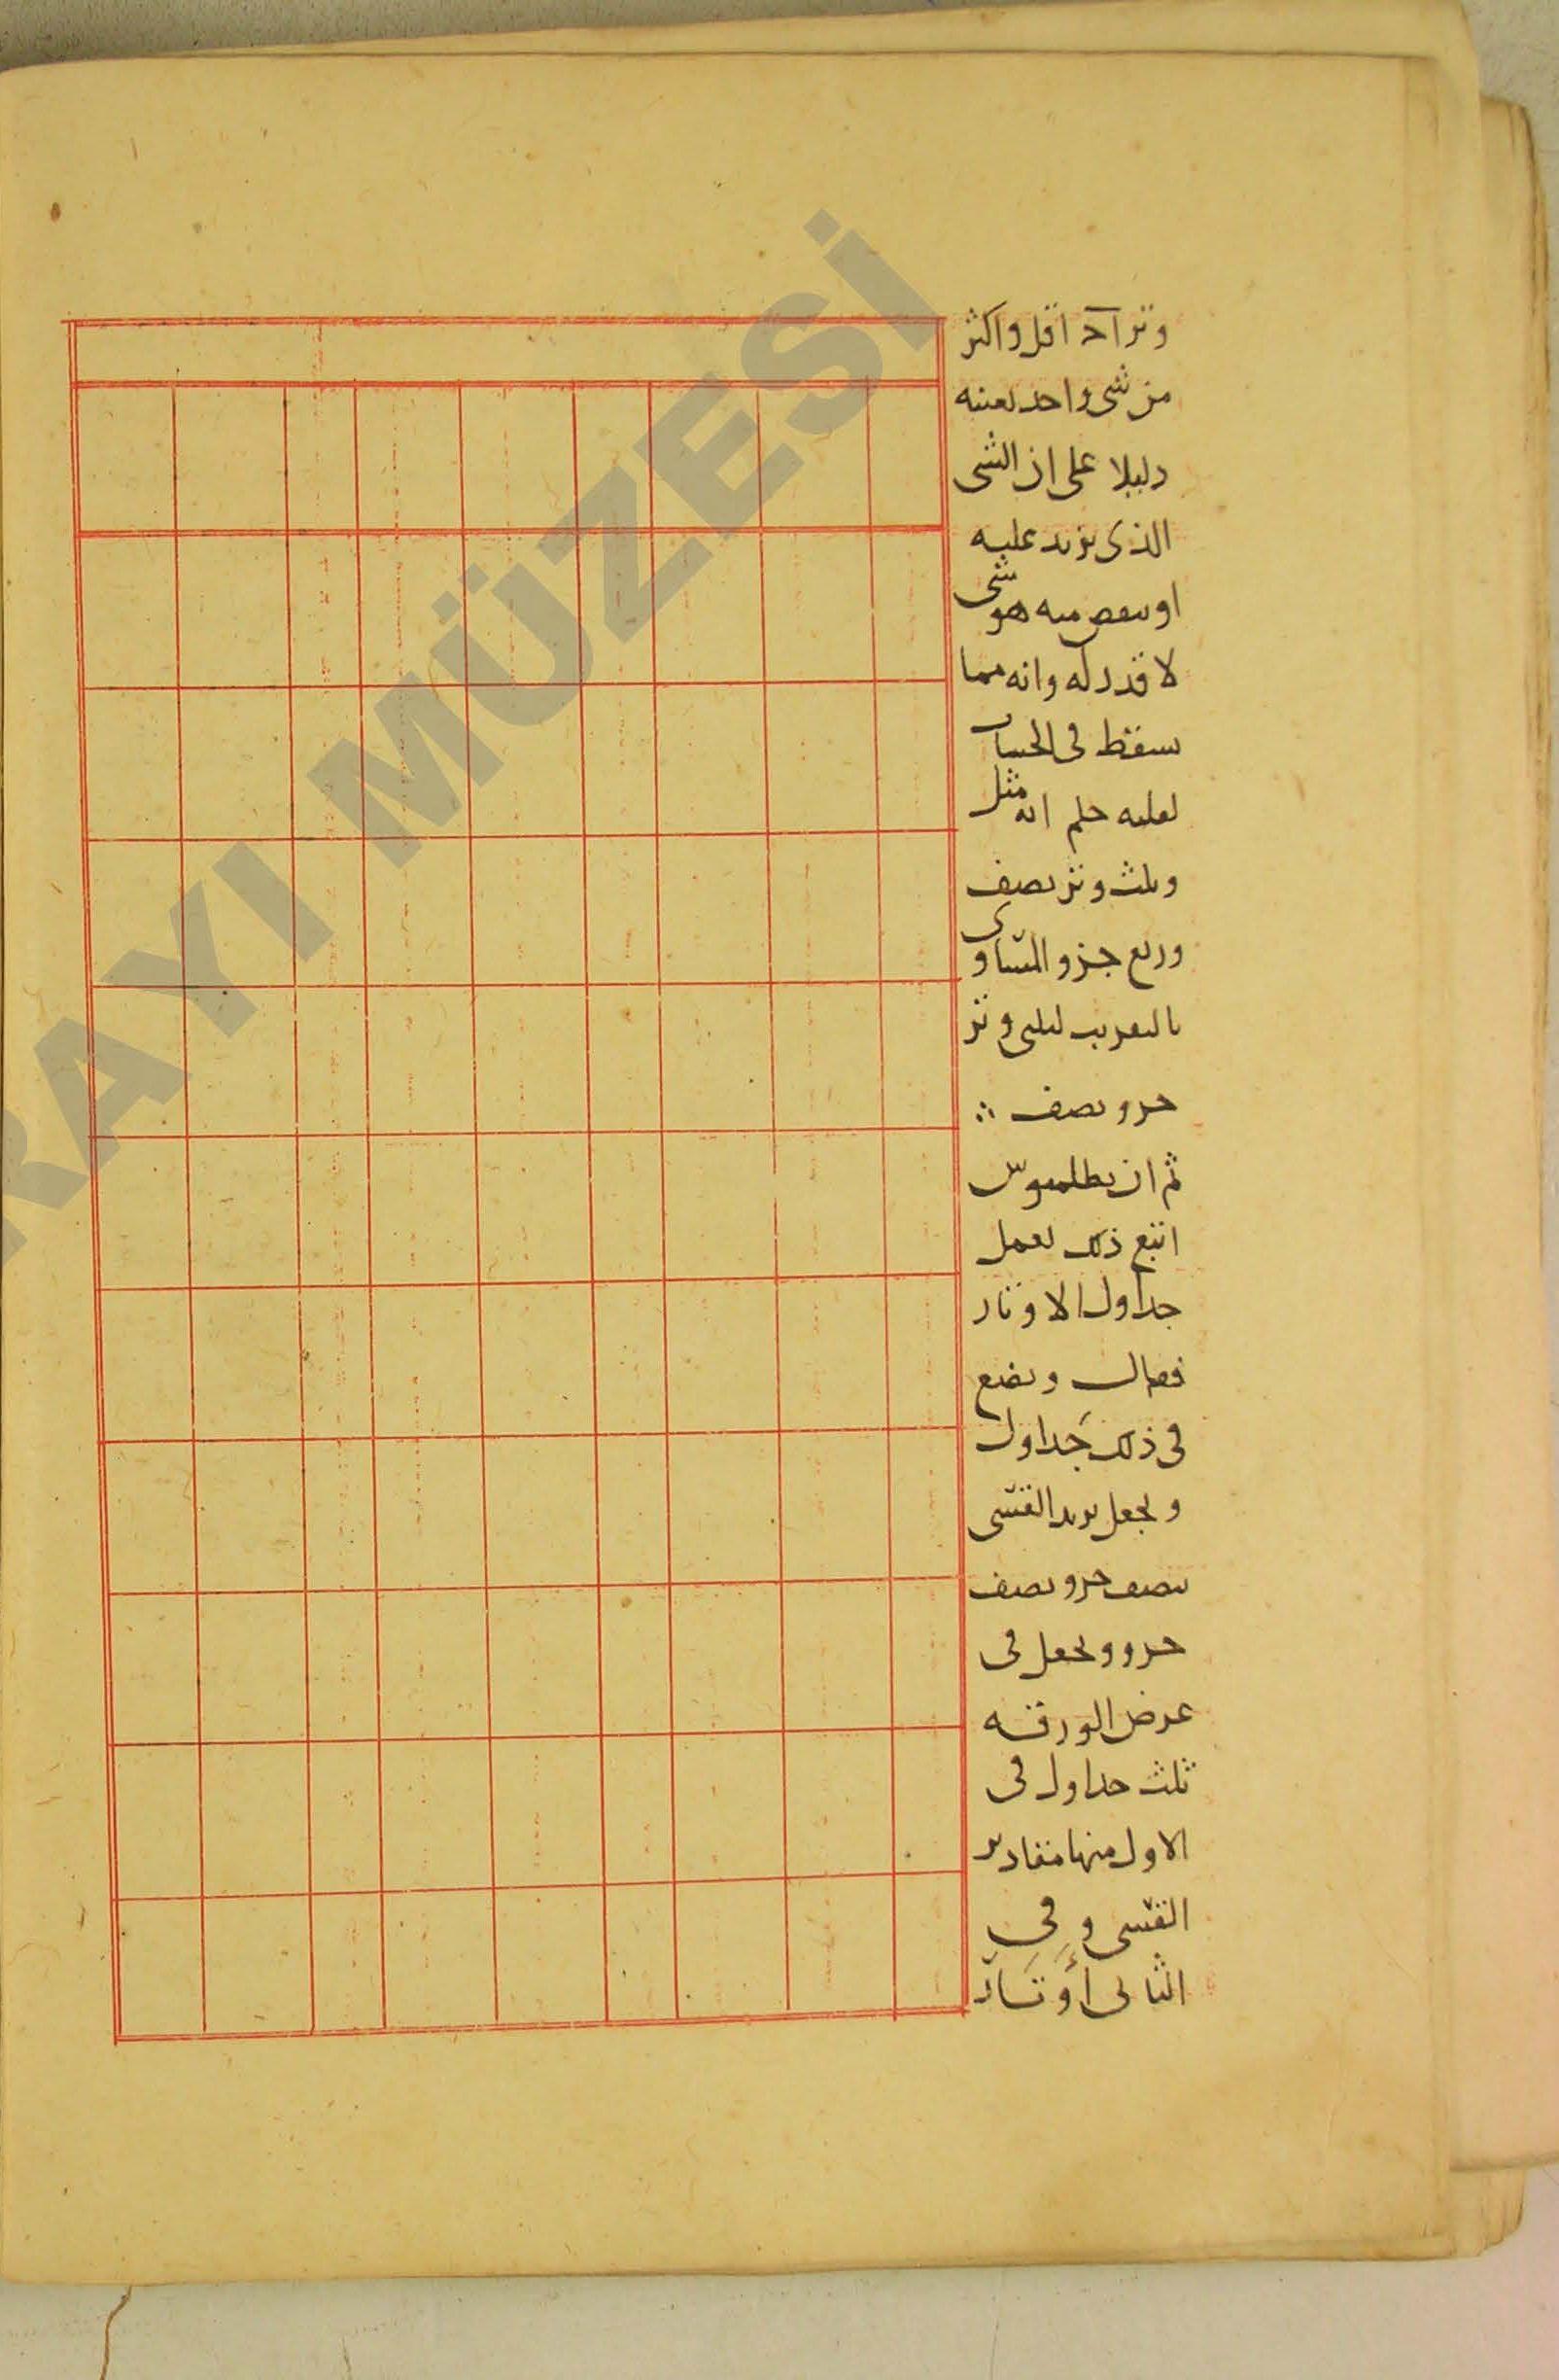 وتر اد اقل واكثر
من شى واحد بعينه
دليلا على ان الشى
الذى يزيد عليه
او ينقص منه هو شى
لا قدر له وانه مما
يسقط فى الحساب
لقلته حكم انه مثل
وثلث وتر نصف
وربع جزو المساوى
بالتقريب لثلثى وتر
جزو ونصف ∴
ثم ان بطلميوس
اتبع ذلك بعمل
جداول الاوتار
فقال ونضع
فى ذلك جَداول
ونجعل تزيد القسّى
بنصف جزو نصف
جزو ونجعل فى
عرض الورقه
ثلث جداول فى
الاول منها مقادير
القسّى و فى
الثانى أَوتَارَ
RAYI MÜZESİ